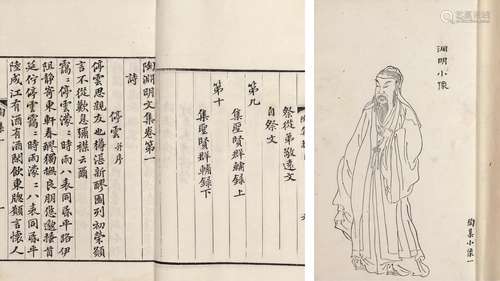 淵明小像
陶集小像一
祭從弟敬遠文
自祭文
第九
集聖賢群輔錄上
第十
集聖賢群輔錄下
陶淵明文集卷第一
詩
停雲并序
停雲思親友也罇湛新醪園列初榮願
言不從歎息彌襟云爾
靄〻停雲濛〻時雨八表同昏平路伊
阻靜寄東軒春醪獨撫良朋悠邈搔首
延佇停雲靄〻時雨濛〻八表同昏平
陸成江有酒有酒閒飲東牕願言懷人
陶集一